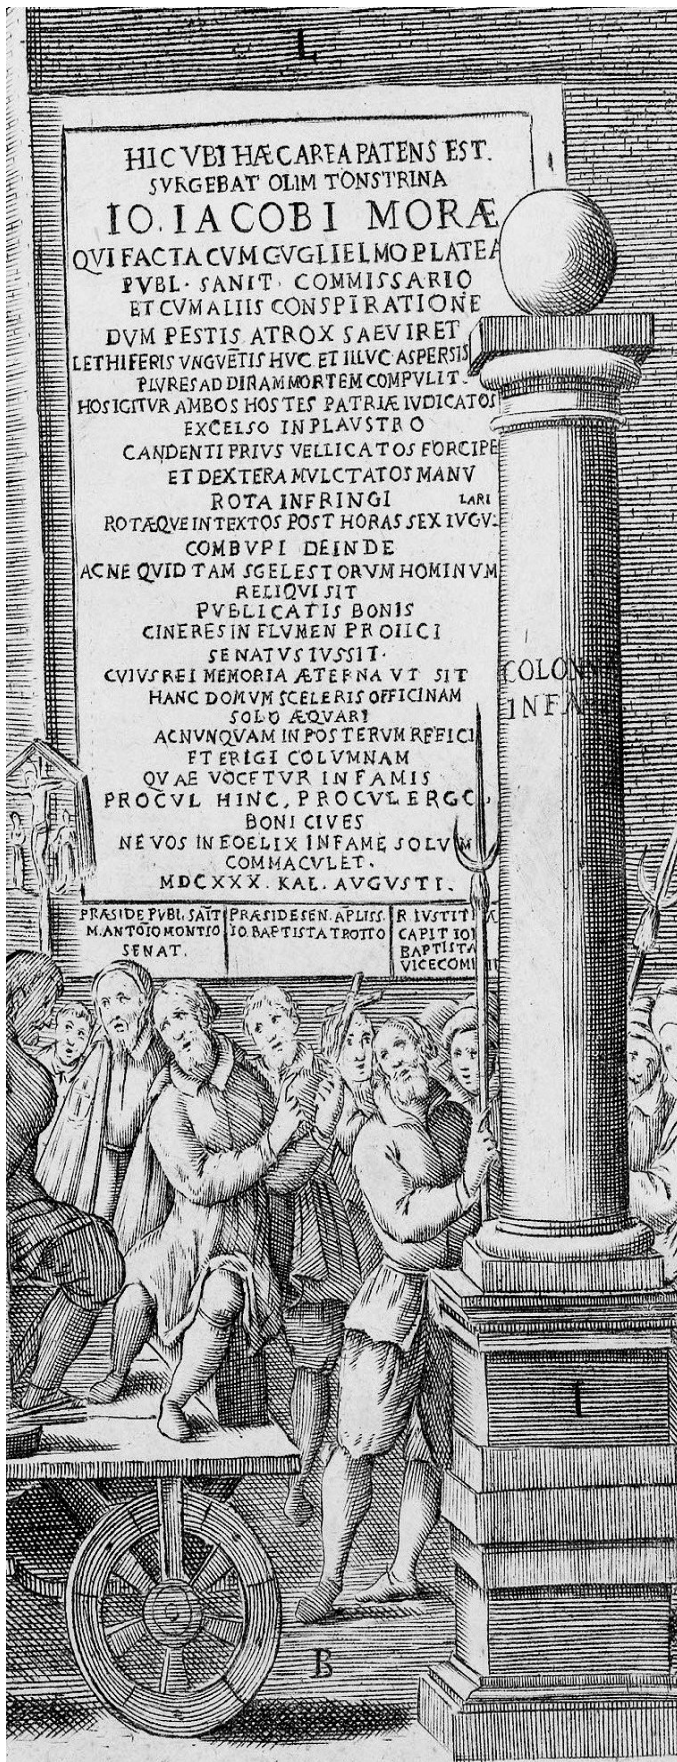 L
HIC VBI HÆC AREA PATENS EST.
SVRGEBAT OLIM TONSTRINA
IO. IACOBI MORÆ
QVI FACTA CVM GVGLIELMO PLATEA
PVBL. SANIT. COMMISSARIO
ET CVM ALIIS CONSPIRATIONE
DVM PESTIS ATROX SAEVIRET
LETHIFERIS VNGVĒTIS HVC ET ILLVC ASPERSIS
PLVRES AD DIRAM MORTEM COMPVLIT.
HOS IGITVR AMBOS HOSTES PATRIÆ IVDICATOS
EXCELSO IN PLAVSTRO
CANDENTI PRIVS VELLICATOS FORCIPE
ET DEXTERA MVLCTATOS MANV
ROTA INFRINGI
ROTÆQVE INTEXTOS POST HORAS SEX IVGV-
LARI
COMBVPI DEINDE
AC NE QVID TAM SGELESTORVM HOMINVM
RELIQVI SIT
PVBLICATIS BONIS
CINERES IN FLVMEN PROIICI
SENATVS IVSSIT.
CVIVS REI MEMORIA ÆTERNA VT SIT
HANC DOMVM SCELERIS OFFICINAM
SOLO ÆQVARI
AC NVNQVAM IN POSTERVM REFICI
ET ERIGI COLVMNAM
QVAE VOCETVR INFAMIS
PROCVL HINC, PROCVL ERGO
BONI CIVES
NE VOS INFOELIX INFAME SOLVM
COMMACVLET.
MDCXXX. KAL. AVGVSTI.
PRÆSIDE PVBL. SAĪT
M. ANTOĪO MONTIO
SENAT.
PRÆSIDE SEN. AP̄LISS.
IO. BAPTISTA TROTTO
R. IVSTIT
CAPIT IO
BAPTISTA
VICECOM
COLONN
INFA
I
B